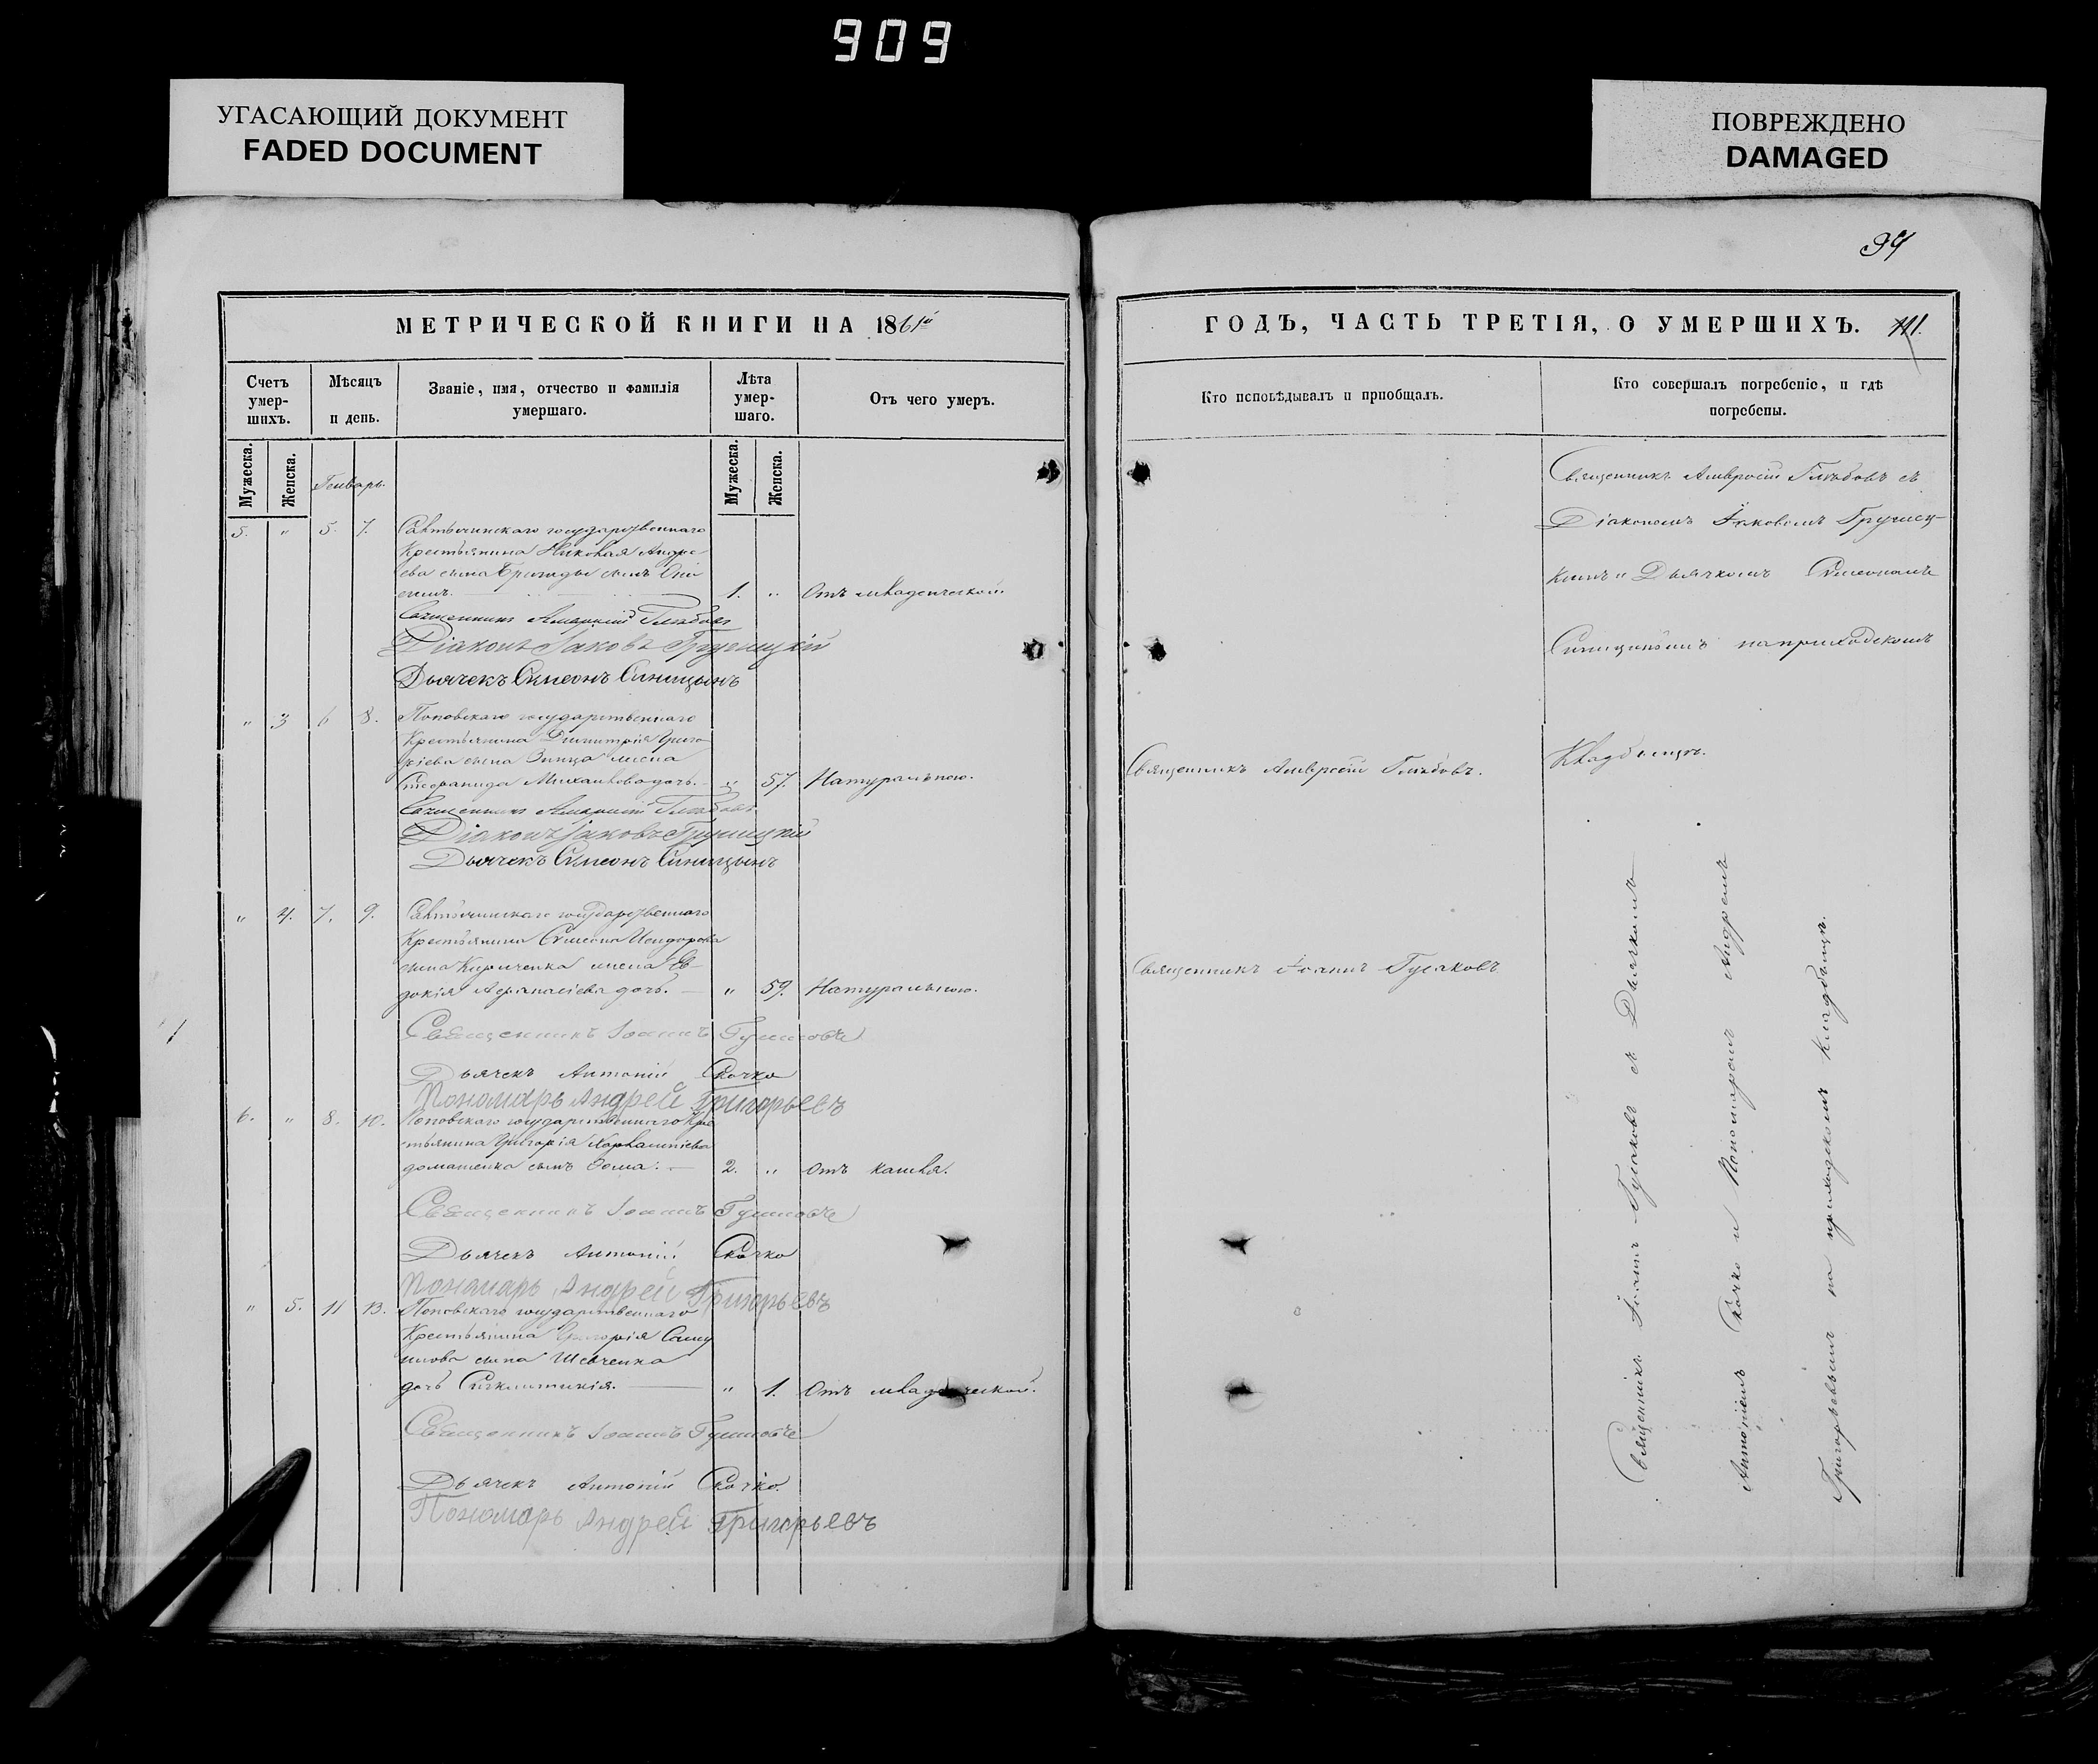 909
УГАСАЮЩИЙ ДОКУМЕНТ
FADED DOCUMENT
ПОВРЕЖДЕНО
DAMAGED
94
МЕТРИЧЕСКОЙ КНИГИ НА 1861й
Счетъ умер-шихъ.
Мѣсяцъ и день.
Званіе, имя, отчество и фамилія умершаго.
Лѣта умер-шаго.
Отъ чего умеръ.
Мужеска.
Женска.
Генварь.
Мужеска.
Женска.
5. " 5. 7. государственнаго
Крестьянина Николая Андре-
ева сына сынъ
1. " Отъ младенческой.
Священникъ Амвросій Глѣбовъ
Діаконъ Іаковъ Грушицкій
Дьячекъ Симеонъ Синицынъ
" 3 6 8. Поповскаго государственнаго
Крестьянина Димитрія Григо-
ріева сына жена
Стефанида Михайлова дочь. " 57. Натуральною.
Священникъ Амвросій Глѣбовъ
Діаконъ Іаковъ Грушицкій
Дьячекъ Симеонъ Синицынъ
" 4. 7. 9. государственнаго
Крестьянина Симеона Исидорова
сына Кириченка жена Ев-
докія Афанасіева дочь. " 59. Натуральною.
Священникъ Іоаннъ
Дьячекъ Антоній Скочко
Пономарь Андрей Григорьевъ
6. " 8. 10. Поповскаго государственнаго Кре-
стьянина Григорія
домашенка сынъ Ѳома. 2. " Отъ кашля.
Священникъ Іоаннъ
Дьячекъ Антоній Скочко
Пономарь Андрей Григорьевъ
" 5. 11 13. Поповскаго государственнаго
Крестьянина Григорія Саму-
илова сына Шевченка
дочь Синклитикія. " 1. Отъ младенческой.
Священникъ Іоаннъ
Дьячекъ Антоній Скочко
Пономарь Андрей Григорьевъ
ГОДЪ, ЧАСТЬ ТРЕТІЯ, О УМЕРШИХЪ. 111.
Кто исповѣдывалъ и пріобщалъ.
Кто совершалъ погребеніе, и гдѣ погребены.
Священникъ Амвросій Глѣбовъ съ
Діакономъ Іаковомъ Грушиц-
кимъ и Дьячкомъ Симеономъ
Синицинымъ на приходскомъ
Священникъ Амвросій Глѣбовъ.
Кладбищѣ.
Священникъ Іоаннъ
Священникъ Іоаннъ съ Дьячкомъ
Антоніемъ Скочко и Пономаремъ Андреемъ
Григорьевымъ на приходскомъ кладбищѣ.